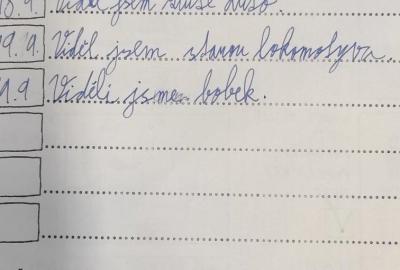 Viděl jsem
19.9. Viděl jsem starou lokomotyva.
Viděli jsme bobek.